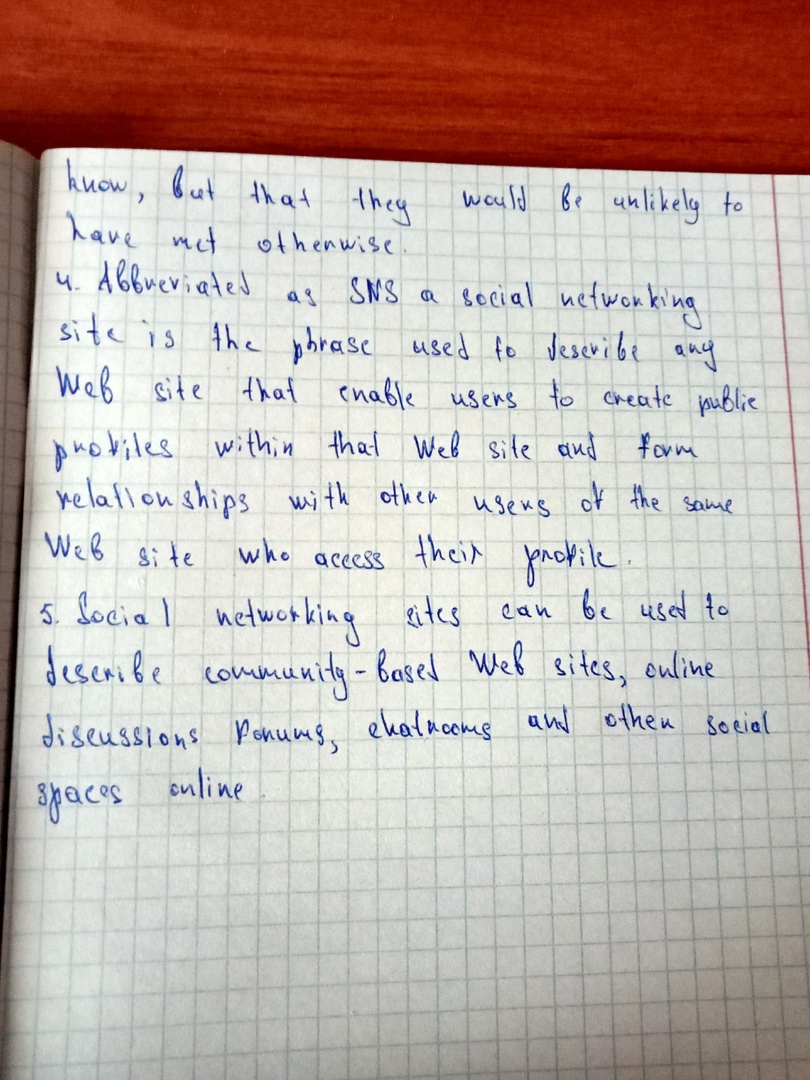 know, but that they would be unlikely to
have met otherwise.
4. Abbreviated as SNS a social networking
site is the phrase used to describe any
Web site that enable users to create public
profiles within that Web site and form
relationships with other users of the same
Web site who access their profile.
5. Social networking sites can be used to
describe community-based Web sites, online
discussions forums, chatrooms and other social
spaces online.